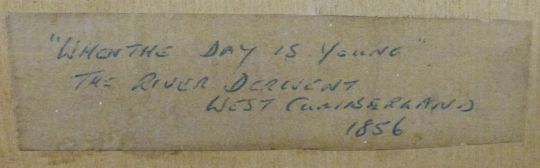 "WHEN THE DAY IS YOUNG"
THE RIVER DERWENT
WEST CUMBERLAND
1856